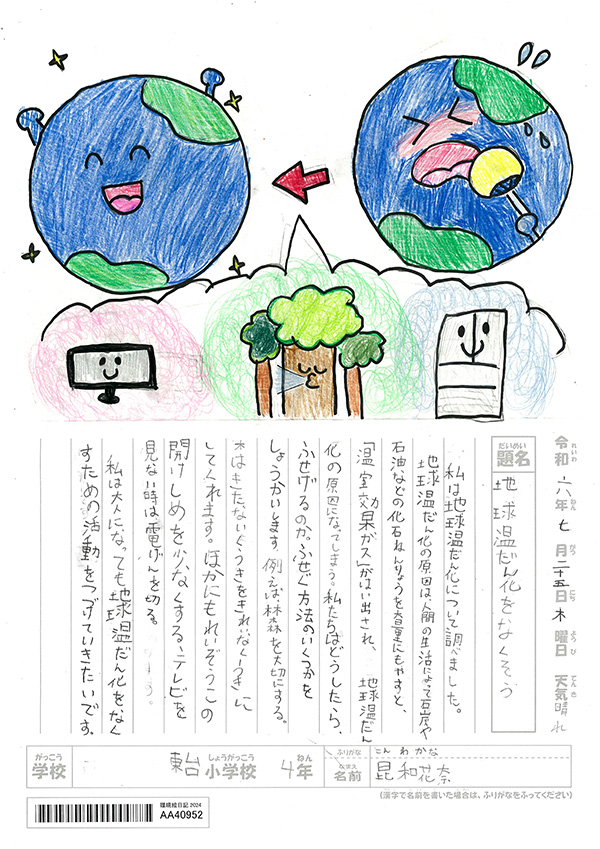 令和六年七月二十五日木曜日 天気晴れ
れいわ ねん がつ にち よう び てんき
だいめい
題名 地球温だん化をなくそう
私は地球温だん化について調べました。
地球温だん化の原因は、人間の生活によって石炭や
石油などの化石ねんりょうを大量にもやすと、
「温室効果ガス」がはい出され、地球温だん
化の原因になってしまう。私たちはどうしたら、
ふせげるのか。ふせぐ方法のいくつかを
しょうかいします。例えば を大切にする。
木はきたないくうきをきれいなくうきに
してくれます。ほかにもれいぞうこの
開けしめを少なくする、テレビを
見ない時は電げんを切る。
私は大人になっても地球温だん化をなく
すための活動をつづけていきたいです。
がっこう しょうがっこう ねん ふりがな こんわかな
学校 東台小学校 4年 なまえ 名前 昆和花奈
(漢字で名前を書いた場合は、ふりがなをふってください)
環境絵日記 2024
AA40952